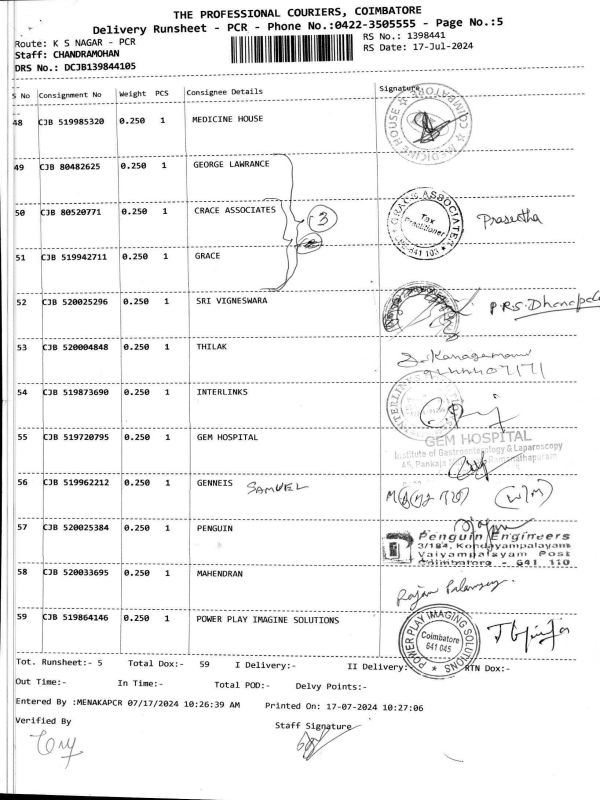 THE PROFESSIONAL COURIERS, COIMBATORE
Delivery Runsheet - PCR - Phone No.:0422-3505555 - Page No.:5
Route: K S NAGAR - PCR
RS No.: 1398441
Staff: CHANDRAMOHAN
RS Date: 17-Jul-2024
DRS No.: DCJB139844105
S No Consignment No Weight PCS Consignee Details Signature
48 CJB 519985320 0.250 1 MEDICINE HOUSE
MEDICINE HOUSE COIMBATORE
49 CJB 80482625 0.250 1 GEORGE LAWRANCE
50 CJB 80520771 0.250 1 CRACE ASSOCIATES
3
GRACE ASSOCIATES
Tax Practitioner
641 103
Praseetha
51 CJB 519942711 0.250 1 GRACE
52 CJB 520025296 0.250 1 SRI VIGNESWARA
P.R.S. Dhanapal
53 CJB 520004848 0.250 1 THILAK
54 CJB 519873690 0.250 1 INTERLINKS
INTERLINKS
55 CJB 519720795 0.250 1 GEM HOSPITAL
GEM HOSPITAL
Institute of Gastroenterology & Laparoscopy
45, Pankaja Ramanathapuram
56 CJB 519962212 0.250 1 GENNEIS SAMUEL
(W/M)
57 CJB 520025384 0.250 1 PENGUIN
Penguin Engineers
3/184, Kondayampalayam
Vaiyampalayam Post
Coimbatore - 641 110
58 CJB 520033695 0.250 1 MAHENDRAN
Rajan
59 CJB 519864146 0.250 1 POWER PLAY IMAGINE SOLUTIONS
POWER PLAY IMAGING SOLUTIONS
Coimbatore
641 045
Tot. Runsheet:- 5 Total Dox:- 59 I Delivery:- II Delivery:- RTN Dox:-
Out Time:- In Time:- Total POD:- Delvy Points:-
Entered By :MENAKAPCR 07/17/2024 10:26:39 AM Printed On: 17-07-2024 10:27:06
Verified By Staff Signature